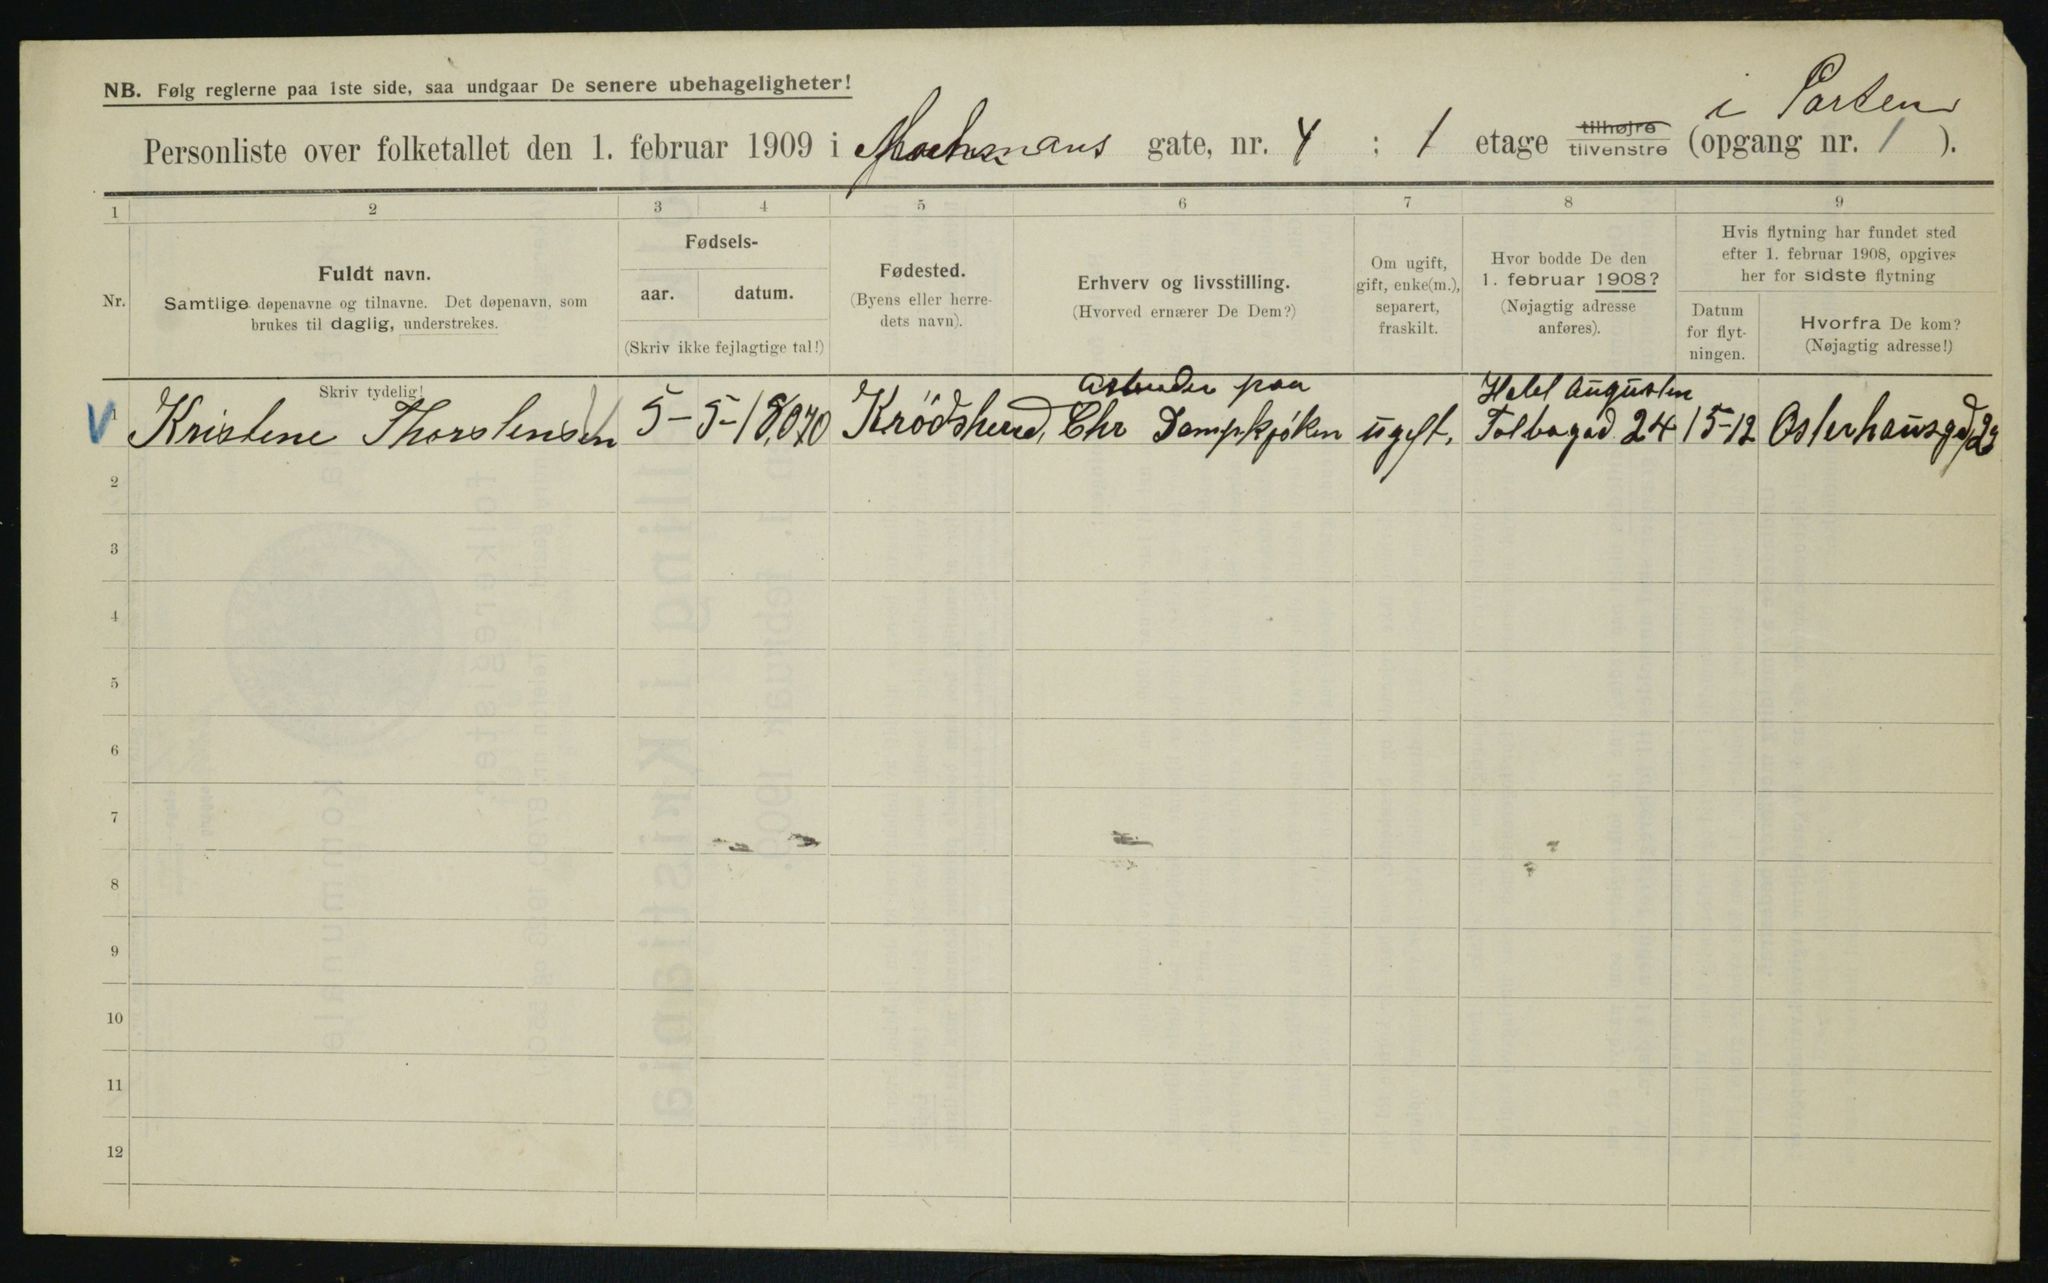 NB. Følg reglerne paa 1ste side, saa undgaar De senere ubehageligheter!
i Porten
Personliste over folketallet den 1. februar 1909 i gate, nr. 4 : 1 etage tilhøjre tilvenstre (opgang nr. 1 ).
1 2 3 4 5 6 7 8 9
Nr.
Fuldt navn.
Samtlige døpenavne og tilnavne. Det døpenavn, som
brukes til daglig, understrekes.
Skriv tydelig!
Fødsels-
aar. datum.
(Skriv ikke fejlagtige tal!)
Fødested.
(Byens eller herre-
dets navn).
Erhverv og livsstilling.
(Hvorved ernærer De Dem?)
Om ugift,
gift, enke(m.),
separert,
fraskilt.
Hvor bodde De den
1. februar 1908?
(Nøjagtig adresse
anføres).
Hvis flytning har fundet sted
efter 1. februar 1908, opgives
her for sidste flytning
Datum
for flyt-
ningen.
Hvorfra De kom?
(Nøjagtig adresse!)
V 1 Kristene Thorstensen 5-5-1870 Krödsherred,
Arbeider paa
Chr Dampkjøken ugift,
Hotel Augustin
Tolbogad 24 15-12 Osterhausgd 23
2
3
4
5
6
7
8
9
10
11
12